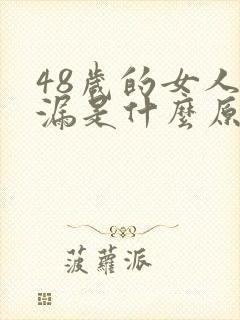 48歲的女人
漏是什麼原
菠蘿派